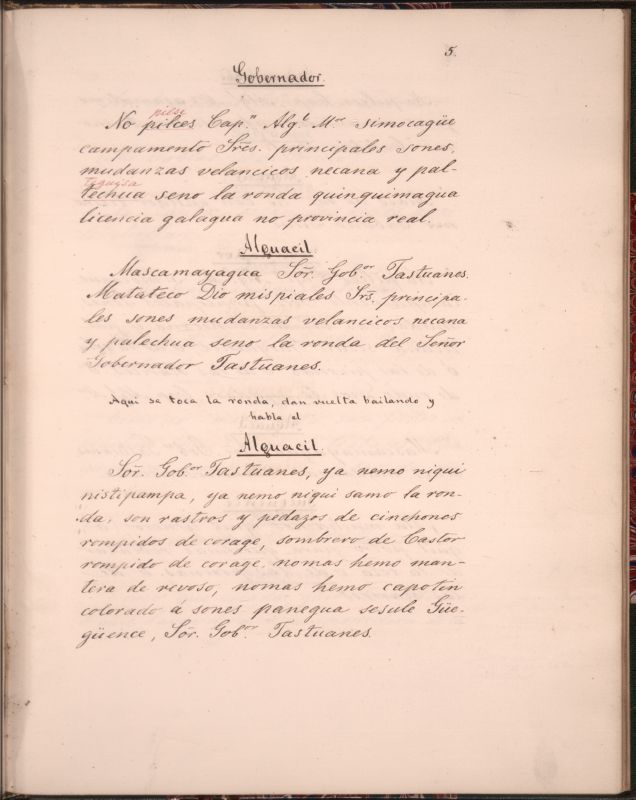 5.
Gobernador.
pilse
No pilces Cap.ⁿ Alg.ˡ M.ᵒʳ simocagüe
campamento Sres. principales sones,
mudanzas velancicos necana y pal-
techua seno la ronda quinquimagua
licencia galagua no provincia real.
Alguacil.
Mascamayagua Sõr. Gob.ᵒʳ Tastuanes.
Matateco Dio mispiales Srs. principa-
les sones mudanzas velancicos necana
y palechua seno la ronda del Señor
Gobernador Tastuanes.
Aqui se toca la ronda, dan vuelta bailando y
habla el
Alguacil.
Sõr. Gob.ᵒʳ Tastuanes, ya nemo niqui
nistipampa, ya nemo niqui samo la ron-
da, son rastros y pedazos de cinchones
rompidos de corage, sombrero de Castor
rompido de corage, nomas hemo man-
tera de revoso, nomas hemo capotin
colorado á sones panegua sesule Güe-
güence, Sõr. Gob.ᵒʳ Tastuanes.